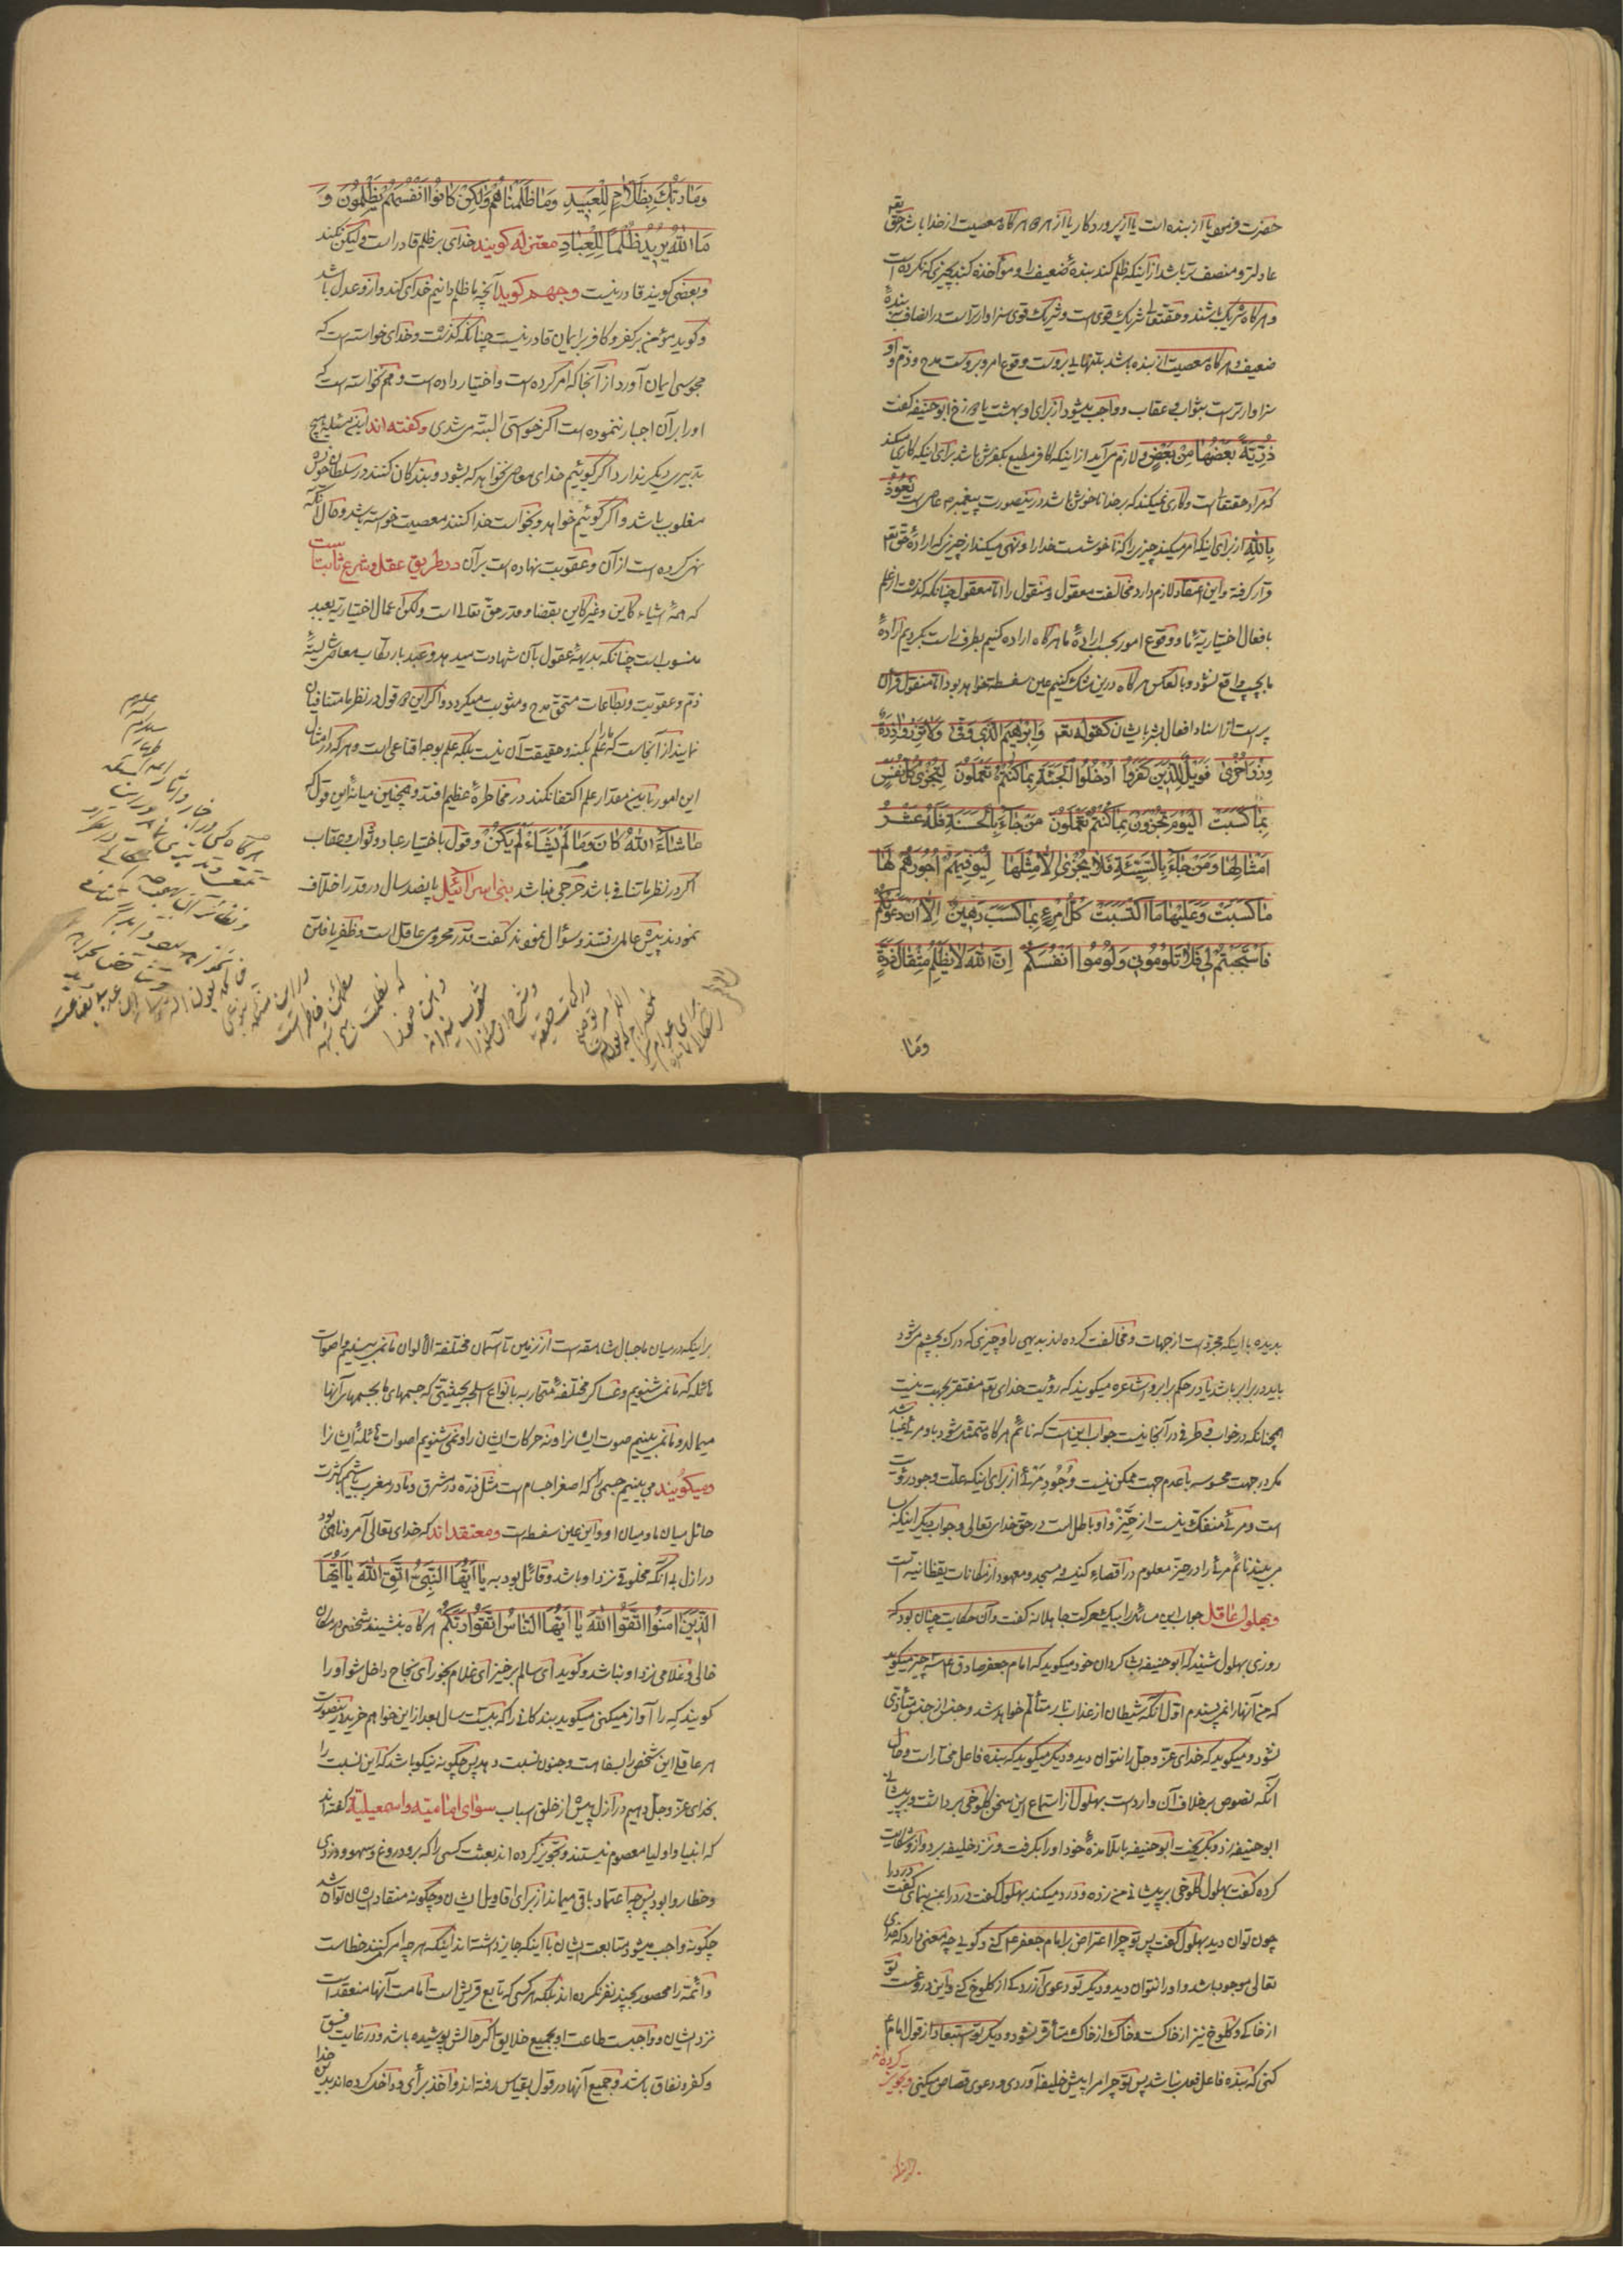 حضرت فرمود یا از بنده است یا از پروردکار یا از هر دو هرکاه معصیت از خدا باشد حق تعم
عادلتر و منصف تر باشد از اینکه ظلم کند بندهٔ ضعیف را و مؤاخذه کند بچیزی که نکرده است
و هرکاه شریک باشند و حقتعالی شریک قوی است و شریک قوی سزاوارتر است در انصاف بندهٔ
ضعیف و هرکاه معصیت از بنده باشد بتنهایی بروست وقوع امر و بروست مدح و ذم و او
سزاوارتر است بثواب و عقاب و واجب میشود از برای او بهشت یا دوزخ ابوحنیفه کفت
ذُرِّيَّةً بَعْضُهَا مِنْ بَعْضٍ و لازم می آید از اینکه کافر مطیع بکفرش باشد برای اینکه کاری میکند
که مراد حقتعا است و کاری نمیکند که بر خدا ناخوش باشد در ینصورت پیغمبر عاصی است نَعُوذُ
بِاللّٰهِ از برای اینکه امر میکند چیزی را که ناخوشست خدا را و نهی میکند از چیزی که ارادهٔ حق تعم
قرار کرفته و این اعتقاد لازم دارد مخالفت معقول و منقول را اما معقول چنانکه کذشت از علم
بافعال اختیاریهٔ ما و وقوع امور بحسب ارادهٔ ما هرکاه اراده کنیم بطرف راست بکردیم ارادهٔ
ما بچپ واقع نشود و بالعکس هرکاه درین شک کنیم عین سفسطه خواهد بود اما منقول قرآن
پر است از اسناد افعال بشر بایشان کقوله تعم وَاِبْرٰهِيمَ الَّذِي وَفّٰى وَلَا تَزِرُ وَازِرَةٌ
وِزْرَ اُخْرٰى فَوَيْلٌ لِلَّذِينَ كَفَرُوا اُدْخُلُوا الْجَنَّةَ بِمَا كُنْتُمْ تَعْمَلُونَ لِتُجْزٰى كُلُّ نَفْسٍ
بِمَا كَسَبَتْ اَلْيَوْمَ تُجْزَوْنَ بِمَا كُنْتُمْ تَعْمَلُونَ مَنْ جَاءَ بِالْحَسَنَةِ فَلَهُ عَشْرُ
اَمْثَالِهَا وَمَنْ جَاءَ بِالسَّيِّئَةِ فَلَا يُجْزٰى اِلَّا مِثْلَهَا لِيُوَفِّيَهُمْ اُجُورَهُمْ لَهَا
مَا كَسَبَتْ وَعَلَيْهَا مَا اكْتَسَبَتْ كُلُّ امْرِئٍ بِمَا كَسَبَ رَهِينٌ اِلَّا اَنْ دَعَوْتُكُمْ
فَاسْتَجَبْتُمْ لِي فَلَا تَلُومُونِي وَلُومُوا اَنْفُسَكُمْ اِنَّ اللّٰهَ لَا يَظْلِمُ مِثْقَالَ ذَرَّةٍ
وَمَا
وَمَا رَبُّكَ بِظَلَّامٍ لِلْعَبِيدِ وَمَا ظَلَمْنَاهُمْ وَلٰكِنْ كَانُوا اَنْفُسَهُمْ يَظْلِمُونَ وَ
مَا اللّٰهُ يُرِيدُ ظُلْمًا لِلْعِبَادِ معتزله کویند خدای بر ظلم قادر است ولیکن نکند
و بعضی کویند قادر نیست و جهم کوید آنچه ما ظلم دانیم خدای کند و از و عدل باشد
و کوید مؤمن بر کفر و کافر بر ایمان قادر نیست چنانکه کذشت و خدای خواسته است که
مجوسی ایمان آورد از آنجا که امر کرده است و اختیار داده است و هم نخواسته است که
او را بر آن اجبار ننموده است اکر خواستی البته می شدی و کفته اند این مسئله هیچ
تدبیری دیکر ندارد اکر کوئیم خدای معاصی نخواهد که بشود و بندکان کنند در سلطان خویش
مغلوب باشد و اکر کوئیم خواهد و بخواست خدا کنند معصیت خواسته باشد و حال آنکه
نهی کرده است از آن و عقوبت نهاده است بر آن در طریق عقل و شرع ثابتست
که همهٔ اشیاء کاین و غیر کاین بقضا و قدر حق تعالی است ولکن اعمال اختیاریه بعبد
منسوب است چنانکه بدیههٔ عقول بآن شهادت میدهد و عبد بارتکاب معاصی شایستهٔ
ذم و عقوبت و بطاعات مستحق مدح و مثوبت میکردد و اکر این دو قول در نظر ما متنافیان
نمایند از آنجاست که ما را علم بکنه و حقیقت آن نیست بلکه علم بوجه اقناعی است و هر که در امثال
این امور باین مقدار علم اکتفا نکند در مخاطرهٔ عظیم افتد و همچنین میانهٔ این قول که
مَا شَاءَ اللّٰهُ كَانَ وَمَا لَمْ يَشَاءْ لَمْ يَكُنْ و قول باختیار عباد و ثواب و عقاب
اکر در نظر ما تنافی باشد حرجی نباشد بنی اسرآئیل پانصد سال در قدر اختلاف
نمودند پیش عالمی رفتند و سؤال نمودند کفت قدر محرومی عاقل است و ظفر یافتن
بدیده با اینکه مجرد است از جهات و مخالفت کرده اند بدیهی را و چیزی که درک بچشم میشود
باید در برابر باشد یا در حکم برابر و اشاعره میکویند که رؤیت خدای تعم مفتقر بجهت نیست
همچنانکه در خواب و طرفی در آنجا نیست جواب این است که نائم هرکاه متمثل شود باو مرئی نمیباشد
مکر در جهت محسوسه با عدم جهت ممکن نیست وُجُودِ مَرْئی از برای اینکه علت وجود رؤیت
است و مرئی منفک نیست از حَیِّزْ و او باطل است در حق خدای تعالی و جواب دیکر اینکه
می بیند نائم مرئی را در حیز معلوم در اقصاء کنیسه و مسجد و معهود از مکانات یقظانیه است
و بهلول عاقل جواب این مسائل را بیک حرکت جاهلانه کفت و آن حکایت چنان بود که
روزی بهلول شنید که ابوحنیفه بشاکردان خود میکوید که امام جعفر صادق ع سه چیز میکوید
که من آنها را نمی پسندم اول آنکه شیطان از عذاب نار متألم خواهد شد و جنس از جنس متأذی
نشود و میکوید که خدای عز و جل را نتوان دید و دیکر میکوید که بنده فاعل مختار است و حال
آنکه نصوص بر خلاف آن وارد است بهلول از استماع این سخن کلوخی برداشت و بر پیشانی
ابوحنیفه زد و بکریخت ابوحنیفه با تلامذهٔ خود او را بکرفت و نزد خلیفه برد و از و شکایت
کرده کفت بهلول کلوخی بر پیشانی من زده و درد میکند بهلول کفت درد را بمن بنمای کفت درد را
چون توان دید بهلول کفت پس تو چرا اعتراض با امام جعفر ع کنی و کویی چه معنی دارد که خدای
تعالی موجود باشد و او را نتوان دید و دیکر تو دعوی آزردکی از کلوخ کنی و این دروغست تو
از خاکی و کلوخ نیز از خاکست و خاک از خاک متأثر نشود و دیکر تو استبعاد از قول امام ع
کنی که بنده فاعل فعل نباشد پس تو چرا مرا پیش خلیفه آوردی و دعوی قصاص میکنی و تجویز کرده اند
بر اینکه در میان ما جبال شاهقه است از زمین تا آسمان مختلفة الألوان ما نمی بینیم و اصوات
هائله که ما نمی شنویم و عساکر مختلفهٔ متحاربه بانواع اسلحه بحیثیتی که جسمهای ما بجسمهای آنها
میمالد و ما نمی بینیم صورت ایشانرا و نه حرکات ایشان را و نمی شنویم اصوات هائلهٔ ایشانرا
و میکویند می بینیم جسمی را که اصغر اجسام است مثل ذره در مشرق و ما در مغرب باشیم بکثرت
حائل میان ما و میان او و این عین سفسطه است و معتقد اند که خدای تعالی آمر و ناهی بود
در ازل بی آنکه مخلوقی نزد او باشد و قائل بود به يَا اَيُّهَا النَّبِيُّ اتَّقِ اللّٰهَ يَا اَيُّهَا
الَّذِينَ اٰمَنُوا اتَّقُوا اللّٰهَ يَا اَيُّهَا النَّاسُ اتَّقُوا رَبَّكُمْ هرکاه بنشیند شخصی در مکان
خالی و غلامی نزد او نباشد و کوید ای سالم برخیز ای غلام بخور ای نجاح داخل شو او را
کویند که را آواز میکنی میکوید بندکانی را که بیست سال بعد از این خواهم خرید در ینصورت
هر عاقلی این شخص را بسفاهت و جنون نسبت دهد پس چکونه نیکو باشد که این نسبت را
بخدای عز و جل دهیم در ازل پیش از خلق اسباب سوای امامیّه و اسمعیلیّه کفته اند
که انبیا و اولیا معصوم نیستند و تجویز کرده اند بعثت کسی را که برو دروغ و سهو و دزدی
و خطا روا بود پس چه اعتماد باقی میماند از برای اقاویل ایشان و چکونه منقاد ایشان توان شد
چکونه واجب میشود متابعت ایشان با اینکه جایز داشته اند اینکه هر چه امر کنند خطاست
و ائمه را محصور بچند نفر نکرده اند بلکه هر کسی که تابع قریش است امامت آنها منعقد است
نزد ایشان و واجبست طاعت او بجمیع خلایق اکر حالش پوشیده باشد و در غایت فسق
و کفر و نفاق باشد و جمیع آنها در قول بقیاس رفته اند و اخذ برأی و داخل کرده اند بدین خدا